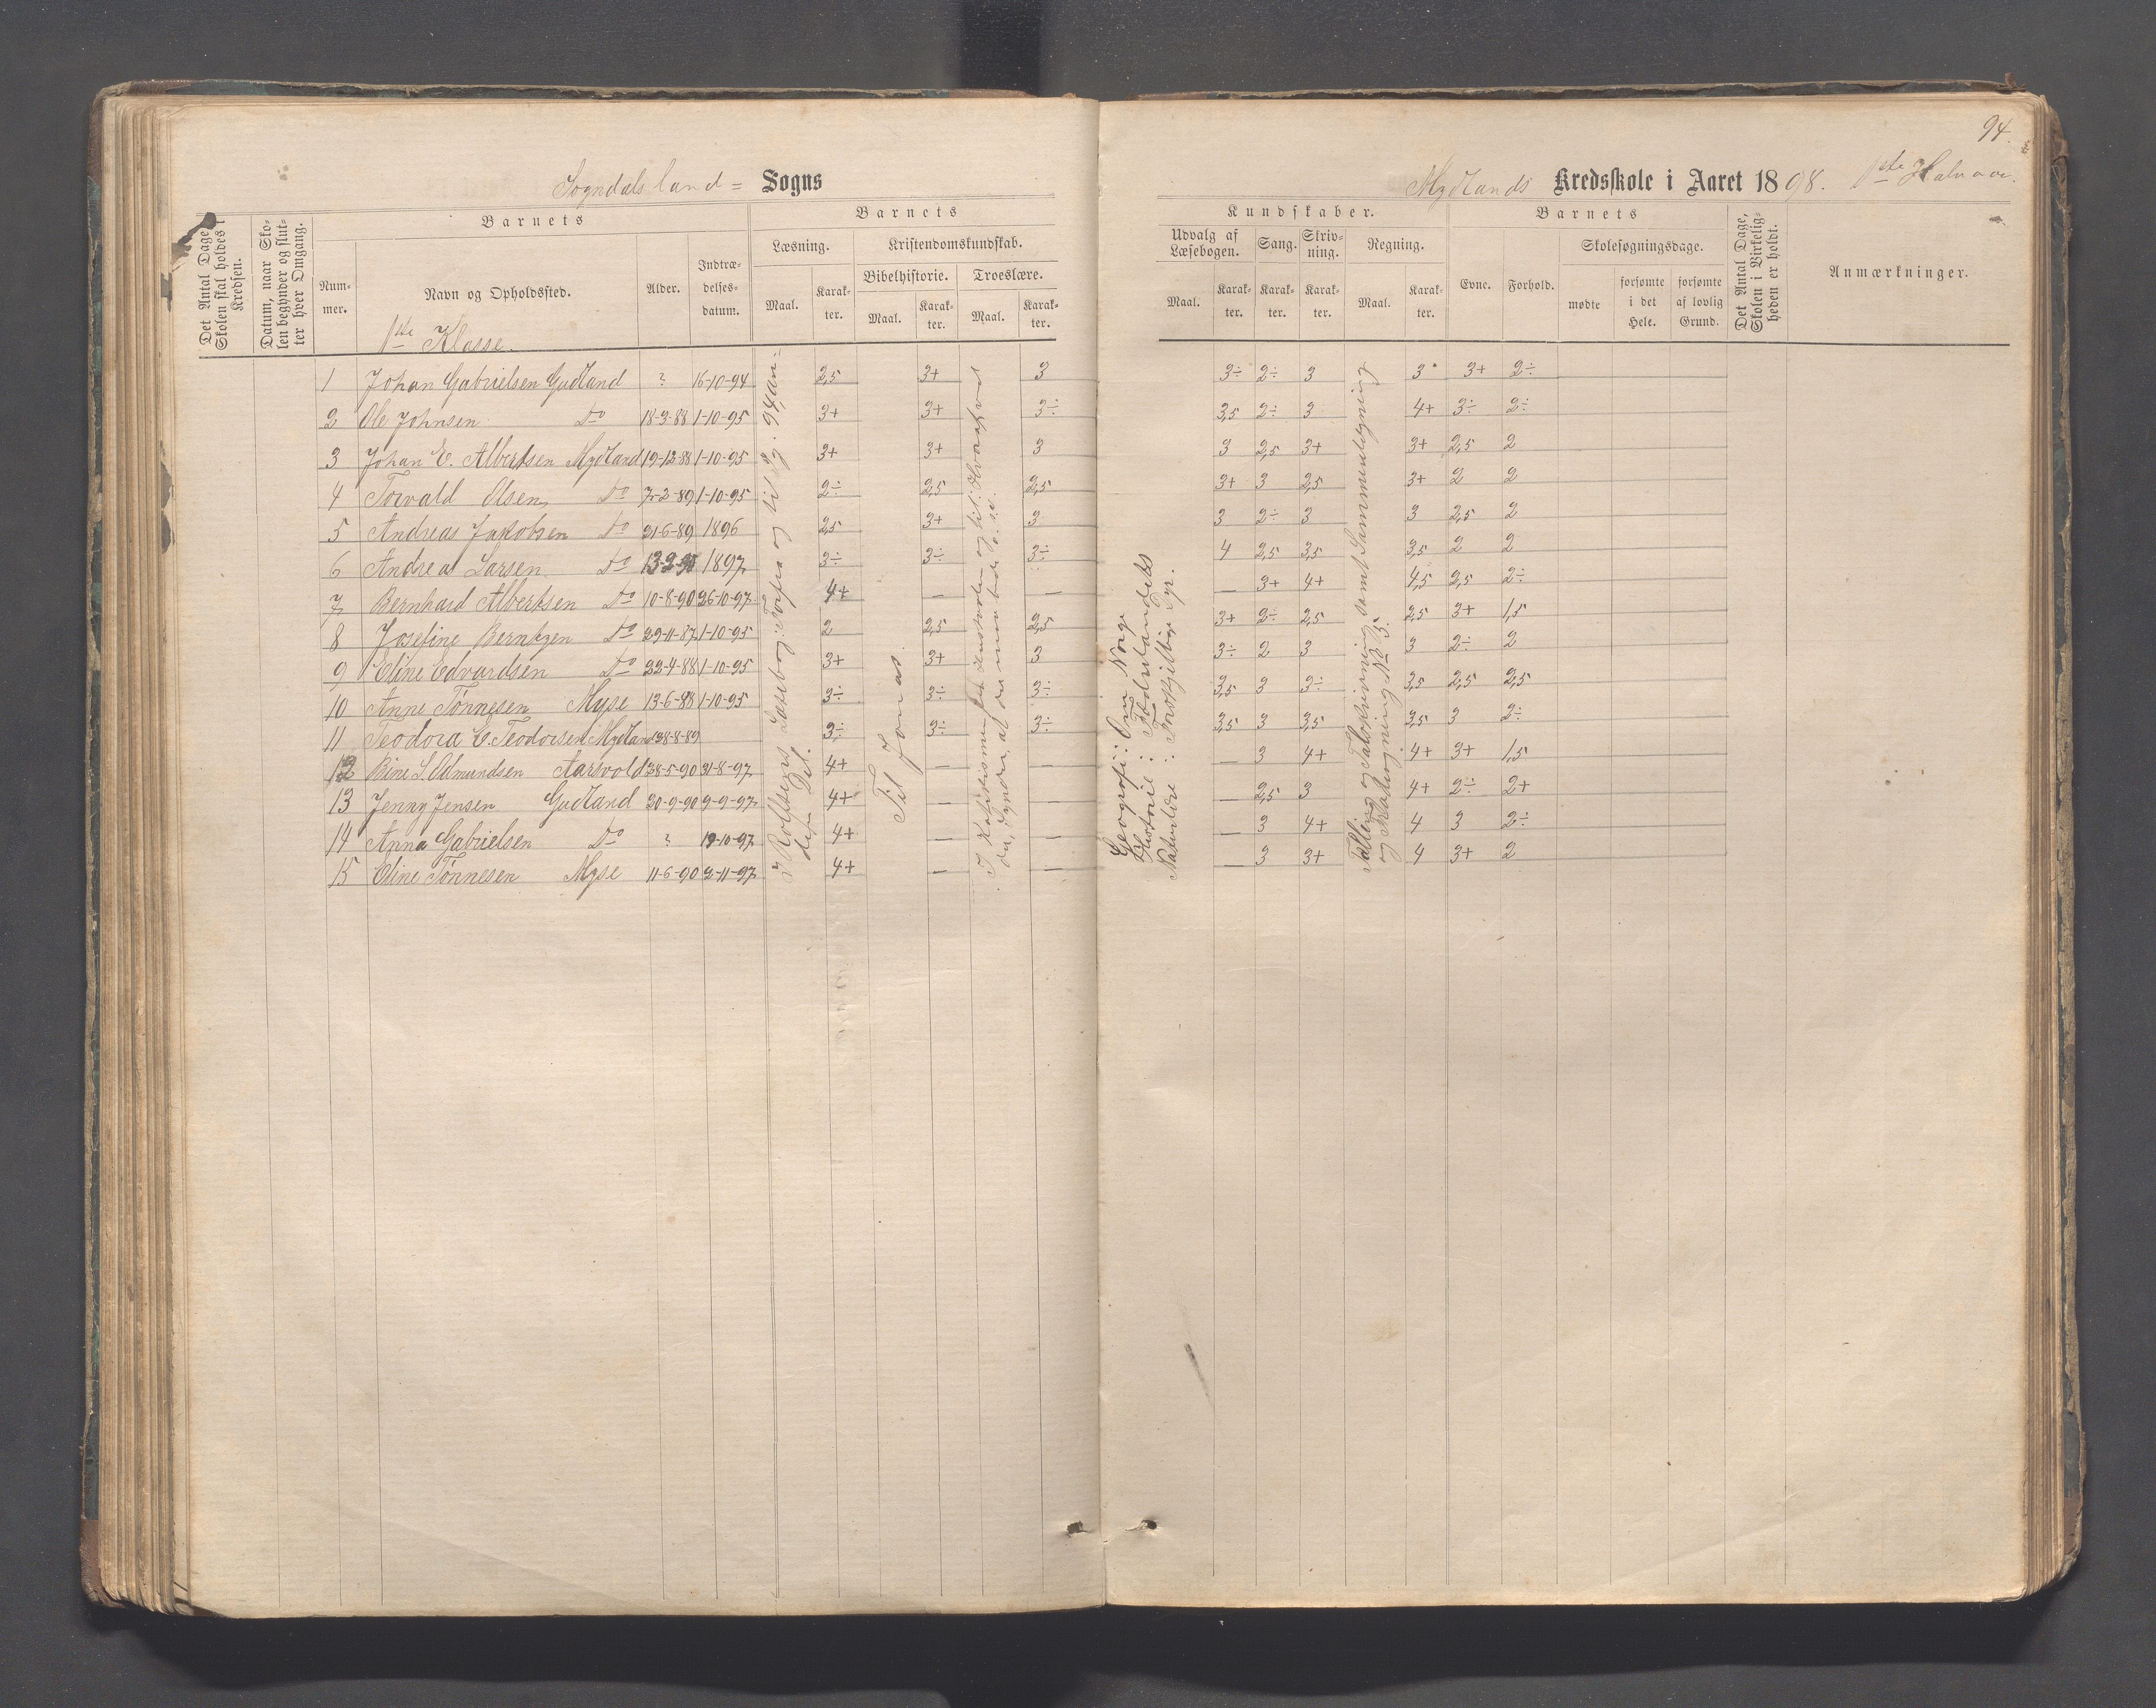 94.
Sogndalsland = Sogns
Mydlands Kredsskole i Aaret 1898. 1ste Halvaar.
Det Antal Dage Skolen skal holdes i Kredsen.
Datum, naar Skolen begynder og slutter hver Omgang.
Barnets
Nummer.
Navn og Opholdssted.
Alder.
Indtrædelsesdatum.
Barnets
Læsning.
Maal.
Karakter.
Kristendomskundskab.
Bibelhistorie.
Maal.
Karakter.
Troeslære.
Maal.
Karakter.
Kundskaber.
Udvalg af Læsebogen.
Maal.
Karakter.
Sang.
Karakter.
Skrivning.
Karakter.
Regning.
Maal.
Karakter.
Barnets
Evne.
Forhold.
Skolesøgningsdage.
mødte
forsømte i det Hele.
forsømte af lovlig Grund.
Det Antal Dage, Skolen i Virkeligheden er holdt.
Anmærkninger.
1ste Klasse.
1 Johan Gabrielsen Gudland ? 16-10-94 2,5 3+ 3 3÷ 2÷ 3 3 3+ 2÷
2 Ole Johnsen Do 18-3-88 1-10-95 3+ 3+ 3÷ 3,5 2÷ 3 4+ 3÷ 2÷
3 Johan E. Albertsen Mydland 19-12-88 1-10-95 3+ 3+ 3 3 2,5 3+ 3+ 2,5 2
4 Torvald Olsen Do 7-2-89 1-10-95 2÷ 2,5 2,5 3+ 3 2,5 3+ 2 2
5 Andreas Jakobsen Do 21-6-89 1896 2,5 3+ 3 3 2÷ 3 3 2,5 2
6 Andrea Larsen Do 13-2-90 1897 3÷ 3÷ 3÷ 4 2,5 3,5 3,5 2 2
7 Bernhard Albertsen Do 10-8-90 26-10-97 4+ — — — 3+ 4+ 4,5 2,5 2÷
8 Josefine Berntzen Do 29-11-87 1-10-95 2 2,5 2,5 3+ 2÷ 2,5 2,5 3+ 1,5
9 Eline Edvardsen Do 22-4-88 1-10-95 3+ 3+ 3 3÷ 2 3 3 2÷ 2
10 Anne Tønnesen Myse 13-6-88 1-10-95 3÷ 3÷ 3÷ 3,5 3 3÷ 3,5 2,5 2,5
11 Teodora E. Teodorsen Mydland 28-8-89 3÷ 3÷ 3÷ 3,5 3 3,5 3,5 3 2÷
12 Bine S. Edmundsen Aarsvold 28-5-90 31-8-97 4+ — — — 3 4+ 4+ 3+ 1,5
13 Jenny Jensen Gudland 30-9-90 9-9-97 4+ — — — 2,5 3 4+ 2÷ 2+
14 Anna Gabrielsen Do ? 19-10-97 4+ — — — 3 4+ 4 3 2÷
15 Eline Tønnesen Myse 11-6-90 2-11-97 4+ — — — 3 3+ 4 3+ 2
I Rolfsens Læsebog: Forfra og til Pg. 94, anden Del.
Til Jonas.
I Katekismen og til: Hvoraf ved du, at du
Geografi: Om Norge
Historie: Fædrelandets
Naturlære: Forskjellige Dyr.
Tælling og Talskrivning samt Sammenlægning og Fradragning No 5.